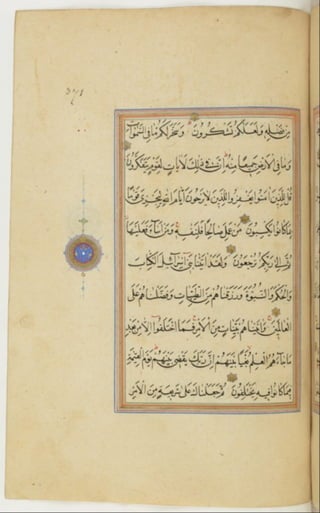 مِن فَضْلِهِ وَلَعَلَّكُمْ تَشْكُرُونَ وَسَخَّرَ لَكُم مَّا فِي السَّمٰوَاتِ
وَمَا فِي الْأَرْضِ جَمِيعًا مِنْهُ إِنَّ فِي ذٰلِكَ لَآيَاتٍ لِقَوْمٍ يَتَفَكَّرُونَ
قُل لِلَّذِينَ آمَنُوا يَغْفِرُوا لِلَّذِينَ لَا يَرْجُونَ أَيَّامَ اللهِ لِيَجْزِيَ قَوْمًا
بِمَا كَانُوا يَكْسِبُونَ مَنْ عَمِلَ صَالِحًا فَلِنَفْسِهِ وَمَنْ أَسَاءَ فَعَلَيْهَا
ثُمَّ إِلَى رَبِّكُمْ تُرْجَعُونَ وَلَقَدْ آتَيْنَا بَنِي إِسْرَائِيلَ الْكِتَابَ
وَالْحُكْمَ وَالنُّبُوَّةَ وَرَزَقْنَاهُمْ مِنَ الطَّيِّبَاتِ وَفَضَّلْنَاهُمْ عَلَى
الْعَالَمِينَ وَآتَيْنَاهُمْ بَيِّنَاتٍ مِنَ الْأَمْرِ فَمَا اخْتَلَفُوا إِلَّا مِنْ بَعْدِ
مَا جَاءَهُمُ الْعِلْمُ بَغْيًا بَيْنَهُمْ إِنَّ رَبَّكَ يَقْضِي بَيْنَهُمْ يَوْمَ الْقِيٰمَةِ
فِيمَا كَانُوا فِيهِ يَخْتَلِفُونَ ثُمَّ جَعَلْنَاكَ عَلَى شَرِيعَةٍ مِنَ الْأَمْرِ